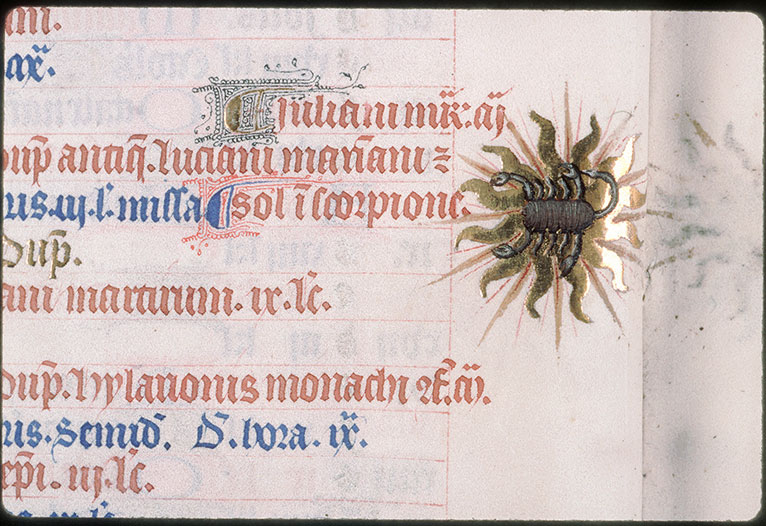 ım.
ıx̃.
Juliani mr̃. cij
dup̃ antiq̃. luciani mariani ⁊
us. iij. l'. missa sol ĩ scorpione.
dup̃.
ani martirum. ix. lc̃.
dup̃. hylarionis monachi cf̃. iij.
us. Semid̃. D̃. hora. ix̃.
ep̃i. iij. lc̃.